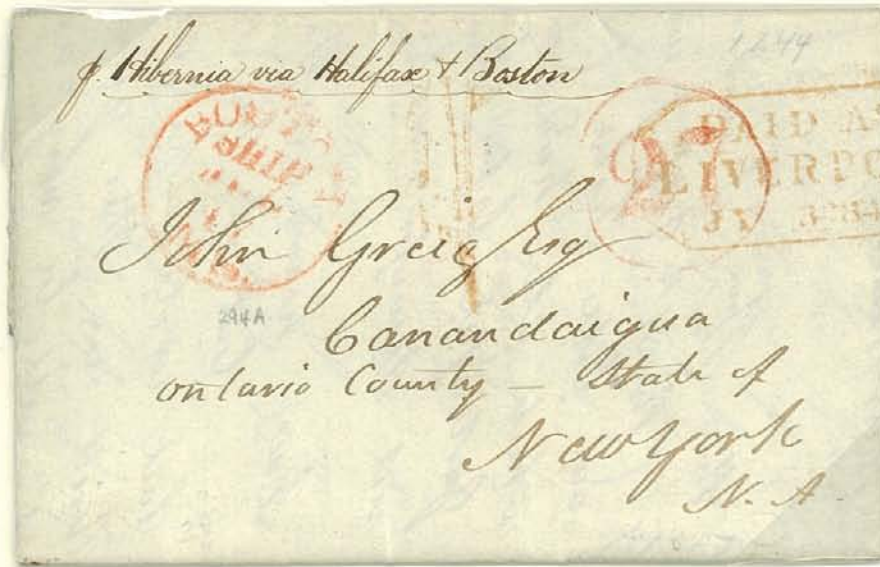 p. Hibernia via Halifax & Boston
1844
SHIP
27
PAID A
LIVERPO
JY
John Greig Esq
294A
Canandaigua
Ontario County — State of
New York
N. A.